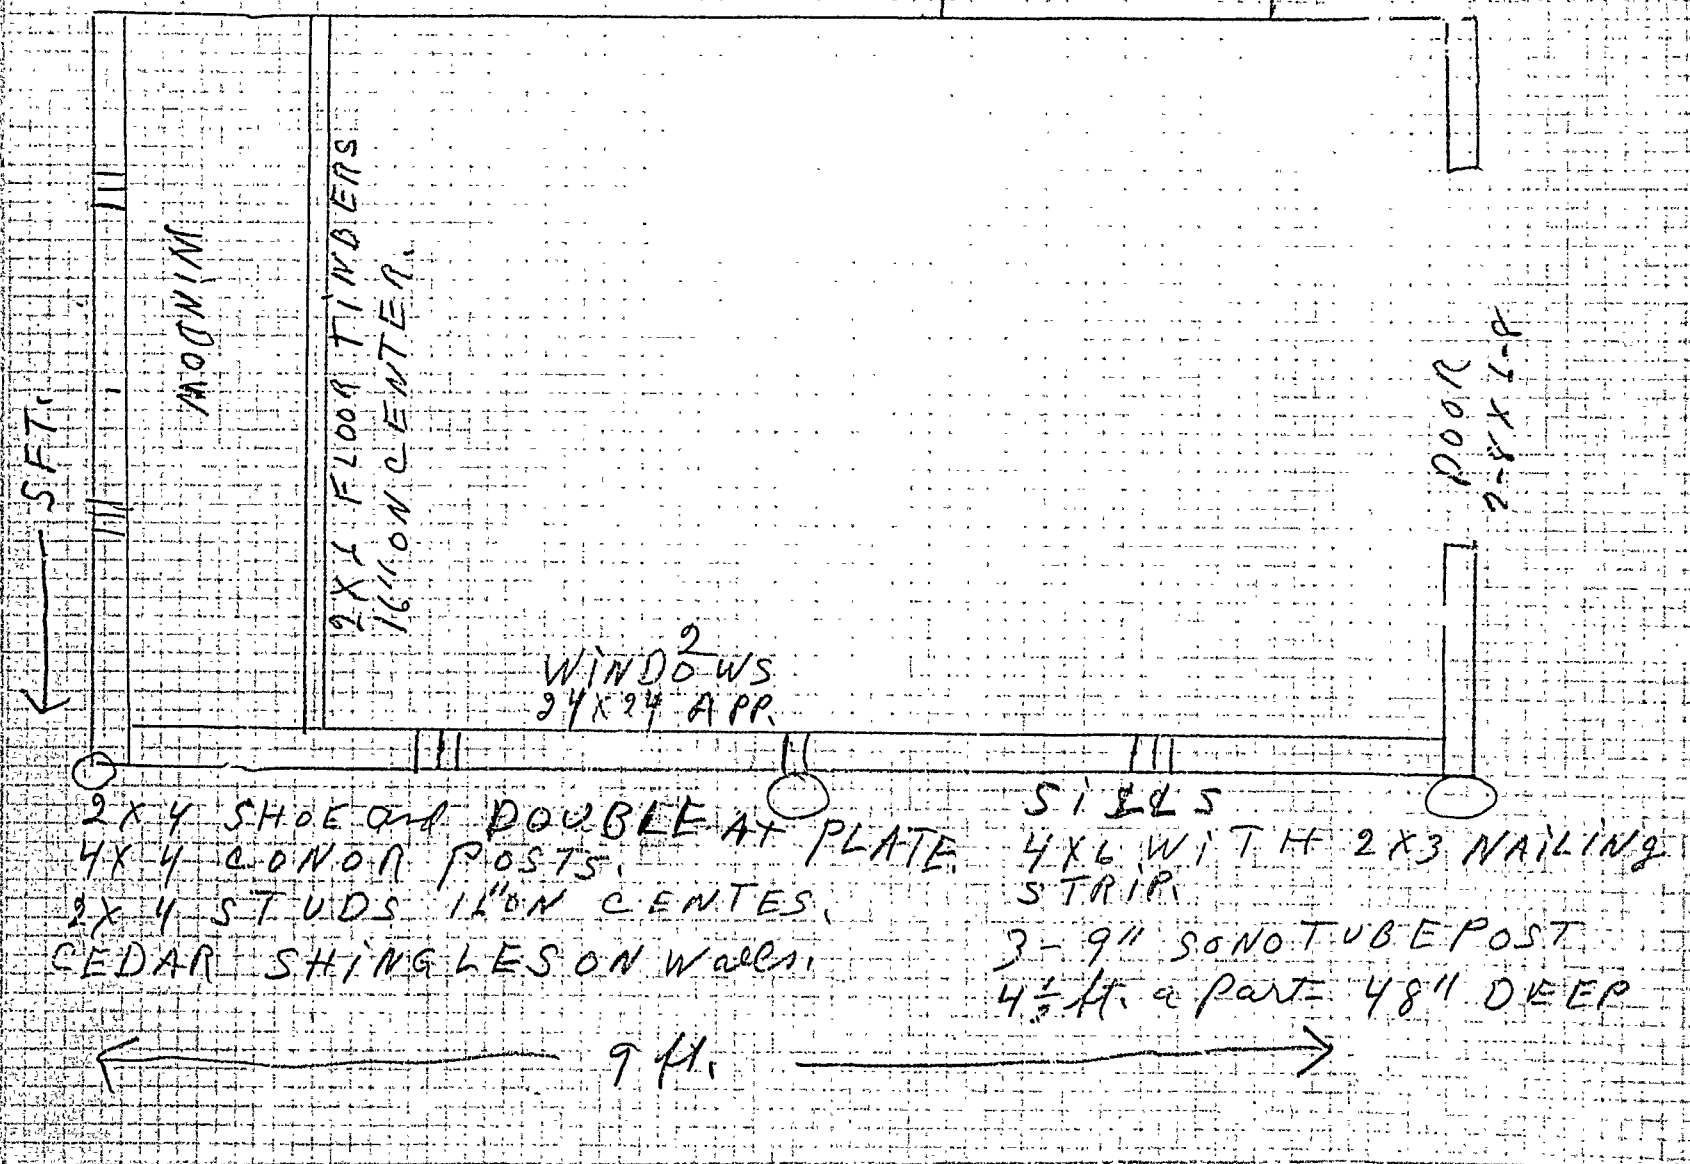 5 FT.
WINDOW
2X6 FLOOR TINBERS
16" ON CENTER.
2
WINDOWS
24X24 APP.
DOOR
2-8 X 6-8
2X4 SHOE and DOUBLE At PLATE.
4X4 CONOR POSTS.
2X4 STUDS 16" ON CENTES.
CEDAR SHINGLES ON Walls.
SILLS
4X6 WITH 2X3 NAILING
STRIP.
3-9" SONOTUBE POST
4 1/2 ft. a Part- 48" DEEP
9 ft.